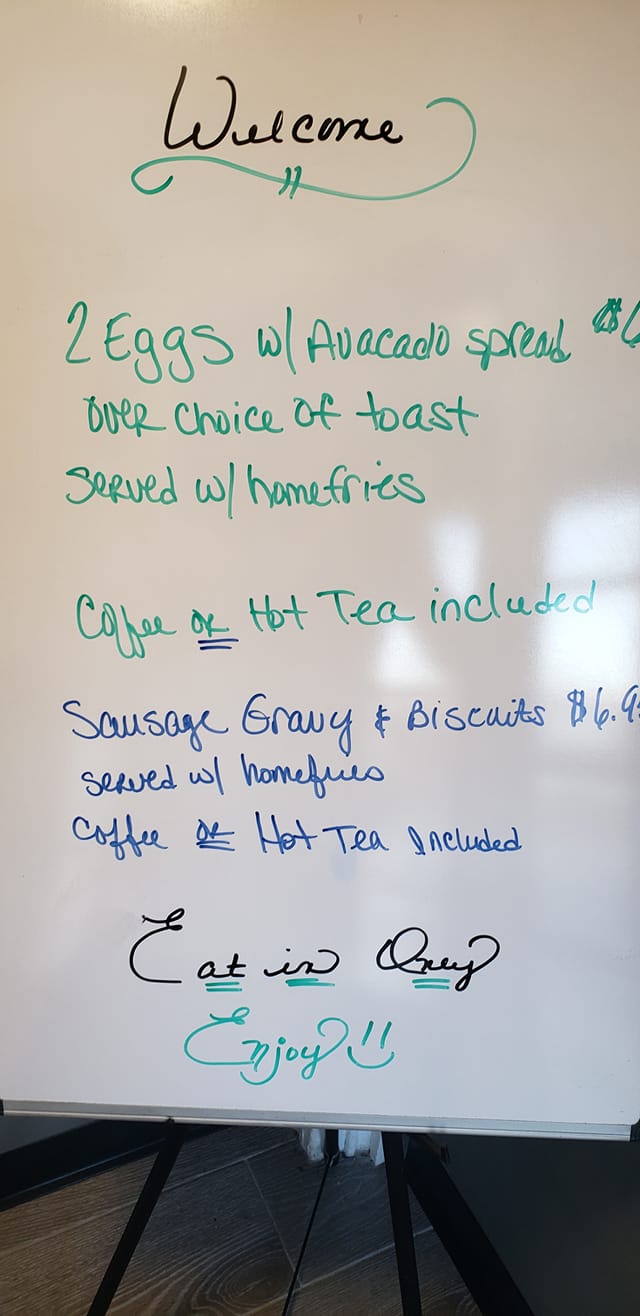 Welcome
2 Eggs w/ Avacado spread
over choice of toast
served w/ homefries
Coffee or Hot Tea included
Sausage Gravy & Biscuits $6.9
served w/ homefries
Coffee or Hot Tea Included
Eat in Only
Enjoy!!